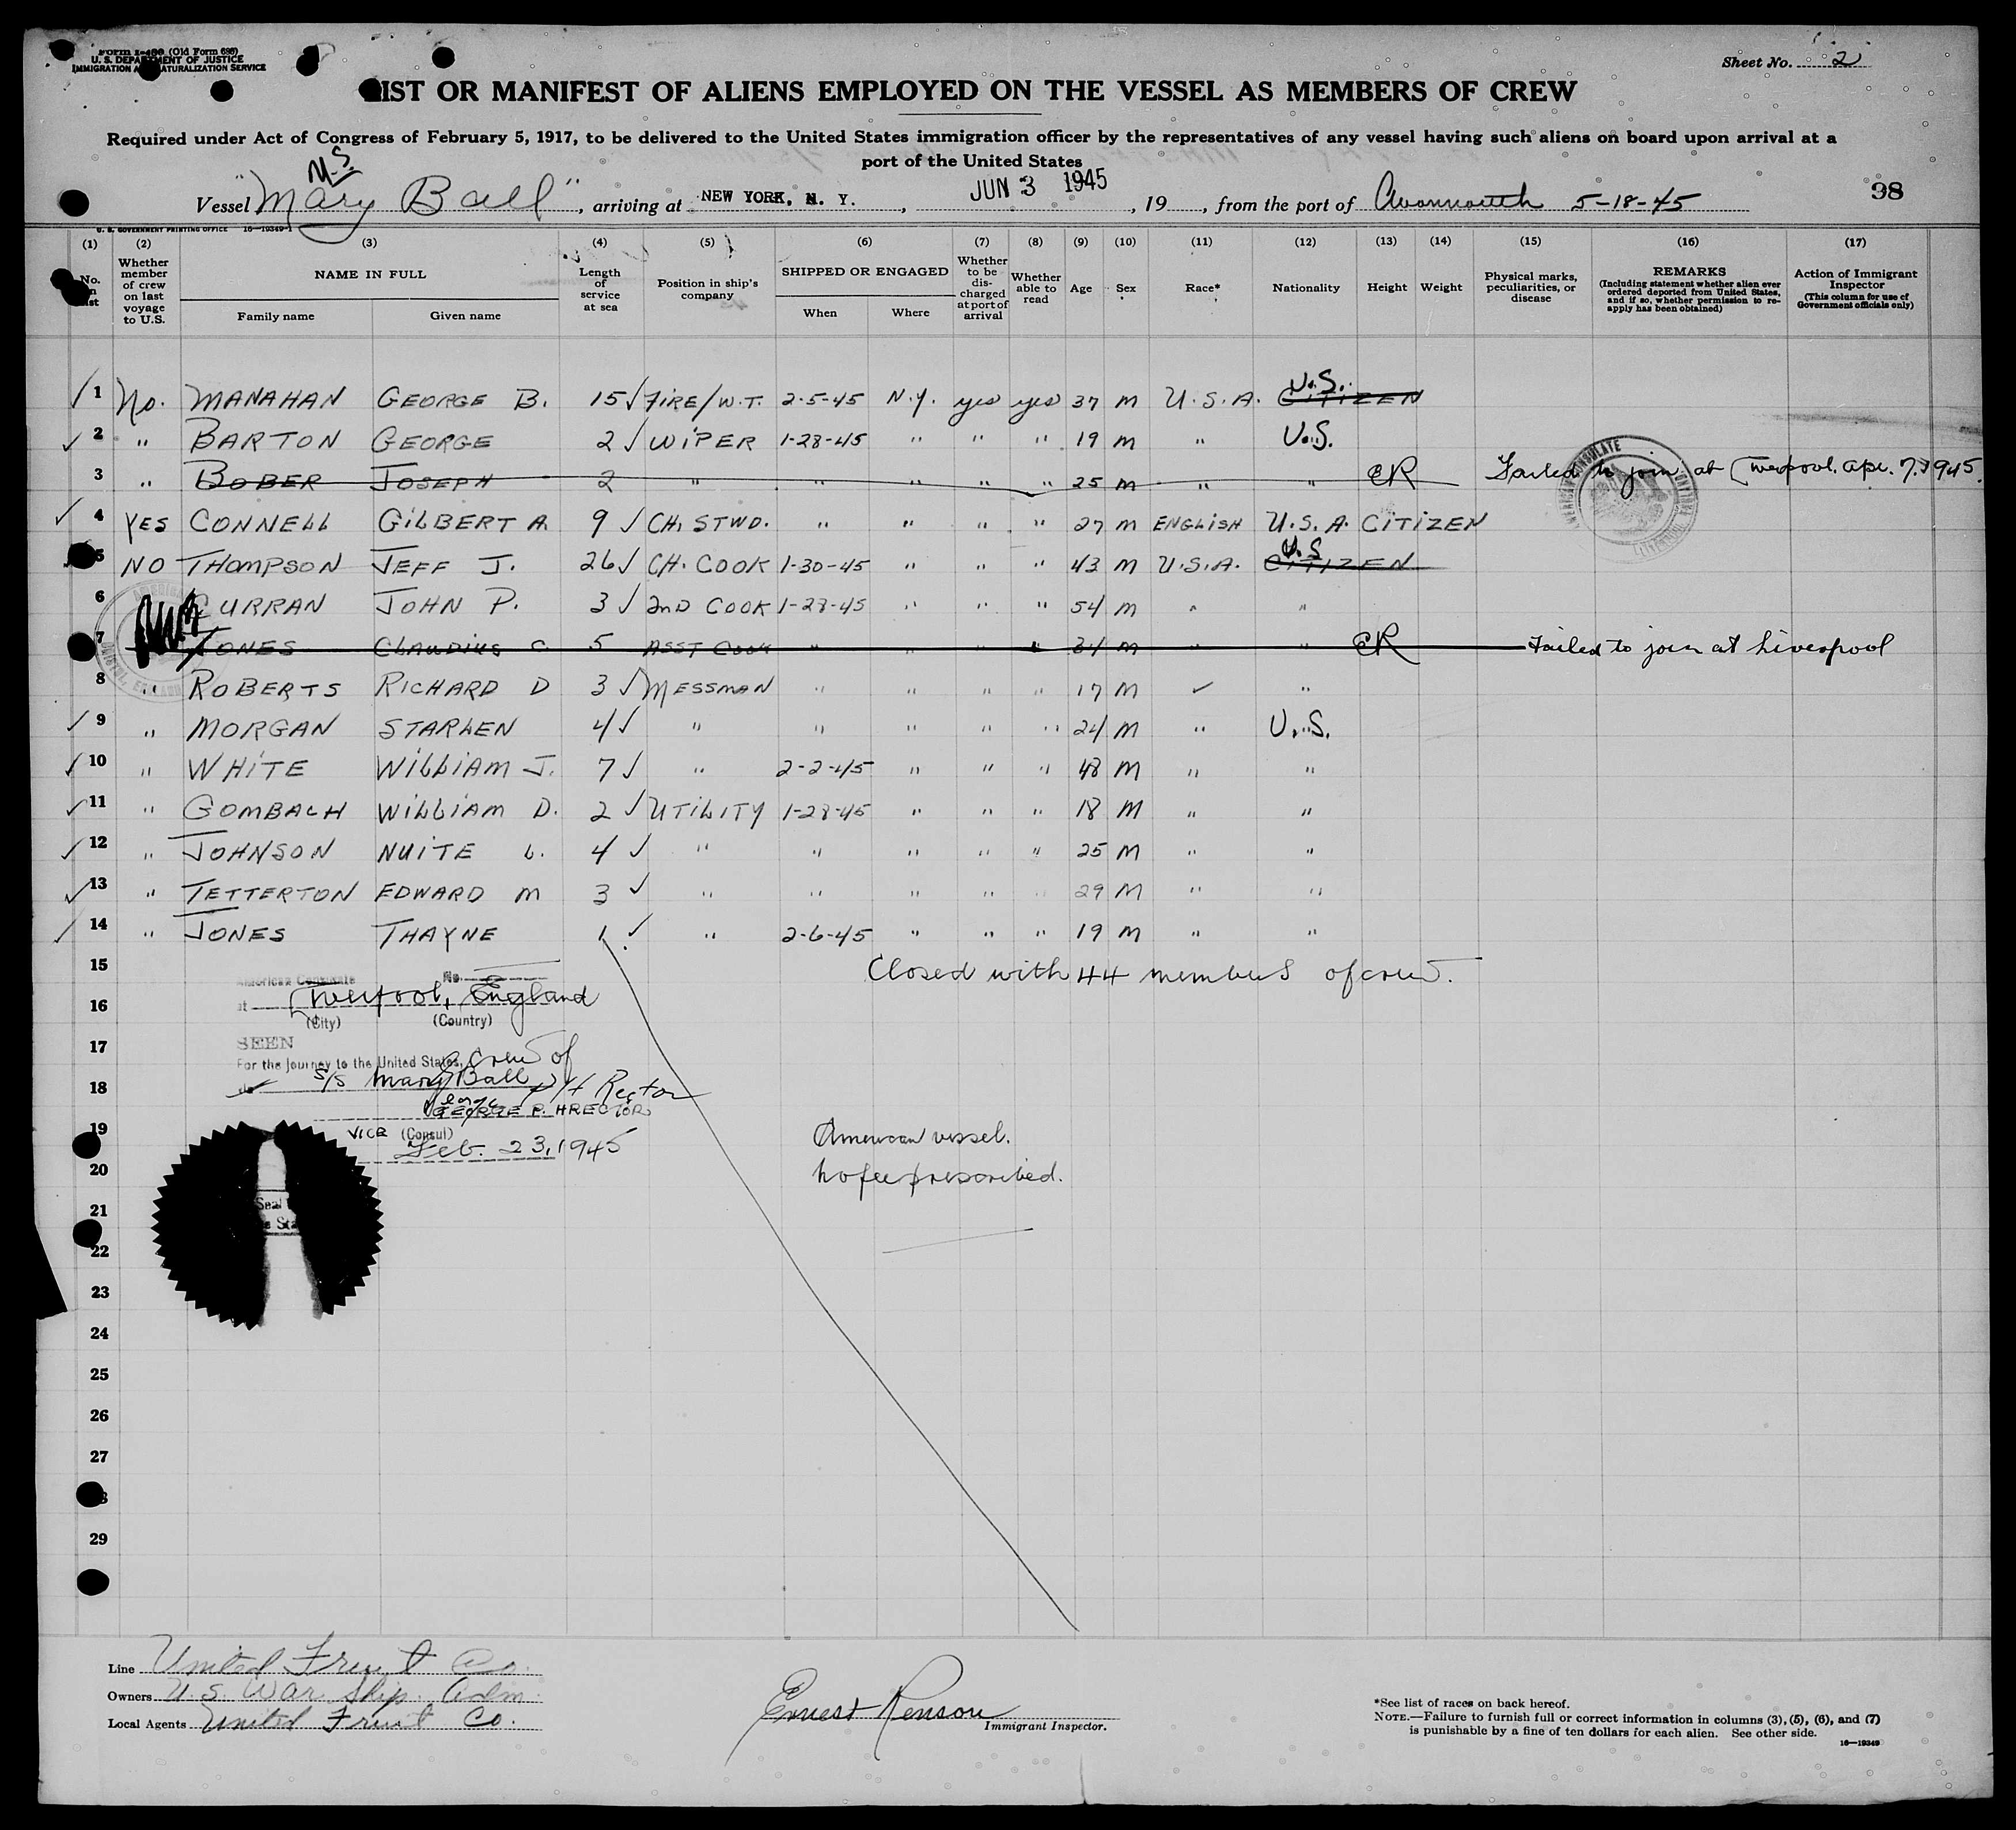 Form I-480 (Old Form 689)
U. S. DEPARTMENT OF JUSTICE
IMMIGRATION AND NATURALIZATION SERVICE
Sheet No. 2
LIST OR MANIFEST OF ALIENS EMPLOYED ON THE VESSEL AS MEMBERS OF CREW
Required under Act of Congress of February 5, 1917, to be delivered to the United States immigration officer by the representatives of any vessel having such aliens on board upon arrival at a
port of the United States
M.S.
Vessel "Mary Ball", arriving at NEW YORK, N. Y., JUN 3 1945, 19, from the port of Avonmouth 5-18-45
98
U. S. GOVERNMENT PRINTING OFFICE 16—19349-1
(1) (2) (3) (4) (5) (6) (7) (8) (9) (10) (11) (12) (13) (14) (15) (16) (17)
No. on list
Whether member of crew on last voyage to U.S.
NAME IN FULL
Family name Given name
Length of service at sea
Position in ship's company
SHIPPED OR ENGAGED
When Where
Whether to be discharged at port of arrival
Whether able to read
Age
Sex
Race*
Nationality
Height
Weight
Physical marks, peculiarities, or disease
REMARKS
(Including statement whether alien ever ordered deported from United States, and if so, whether permission to re-apply has been obtained)
Action of Immigrant Inspector
(This column for use of Government officials only)
✓ 1 No. MANAHAN GEORGE B. 15 ✓ FIRE/W.T. 2-5-45 N.Y. yes yes 37 M U.S.A. U.S. CITIZEN
✓ 2 " BARTON GEORGE 2 ✓ WIPER 1-28-45 " " " 19 M " U.S.
3 " BOBER JOSEPH 2 " " " " " 25 M " " CR Failed to join at Liverpool. Apr. 7, 1945.
✓ 4 YES CONNELL GILBERT A. 9 ✓ CH. STWD. " " " " 27 M ENGLISH U.S.A. CITIZEN
5 NO THOMPSON JEFF J. 26 ✓ CH. COOK 1-30-45 " " " 43 M U.S.A. U.S CITIZEN
6 CURRAN JOHN P. 3 ✓ 2ND COOK 1-28-45 " " " 54 M " "
7 JONES CLAUDIUS C. 5 ASST COOK " " " " 34 M " " CR Failed to join at Liverpool
8 " ROBERTS RICHARD D 3 ✓ MESSMAN " " " " 17 M ✓ "
✓ 9 " MORGAN STARLEN 4 ✓ " " " " " 24 M " U.S.
✓ 10 " WHITE WILLIAM J. 7 ✓ " 2-2-45 " " " 48 M " "
✓ 11 " GOMBACH WILLIAM D. 2 ✓ UTILITY 1-28-45 " " " 18 M " "
✓ 12 " JOHNSON NUITE L. 4 ✓ " " " " " 25 M " "
✓ 13 " TETTERTON EDWARD M 3 ✓ " " " " 29 M " "
✓ 14 " JONES THAYNE 1 ✓ " 2-6-45 " " " 19 M " "
15 Closed with 44 members of crew.
American Consulate No.
16 at Liverpool, England
(City) (Country)
17 SEEN
For the journey to the United States, Crew of
18 S/S Mary Ball
George P. H Rector
GEORGE P. HRECTOR
19 VICE (Consul)
Feb. 23, 1945
American vessel.
20 No fee prescribed.
21
22
23
24
25
26
27
29
Line United Fruit Co.
Owners U.S. War Ship. Adm.
Local Agents United Fruit Co.
Ernest Renson
Immigrant Inspector.
*See list of races on back hereof.
NOTE.—Failure to furnish full or correct information in columns (3), (5), (6), and (7)
is punishable by a fine of ten dollars for each alien. See other side.
16—19349